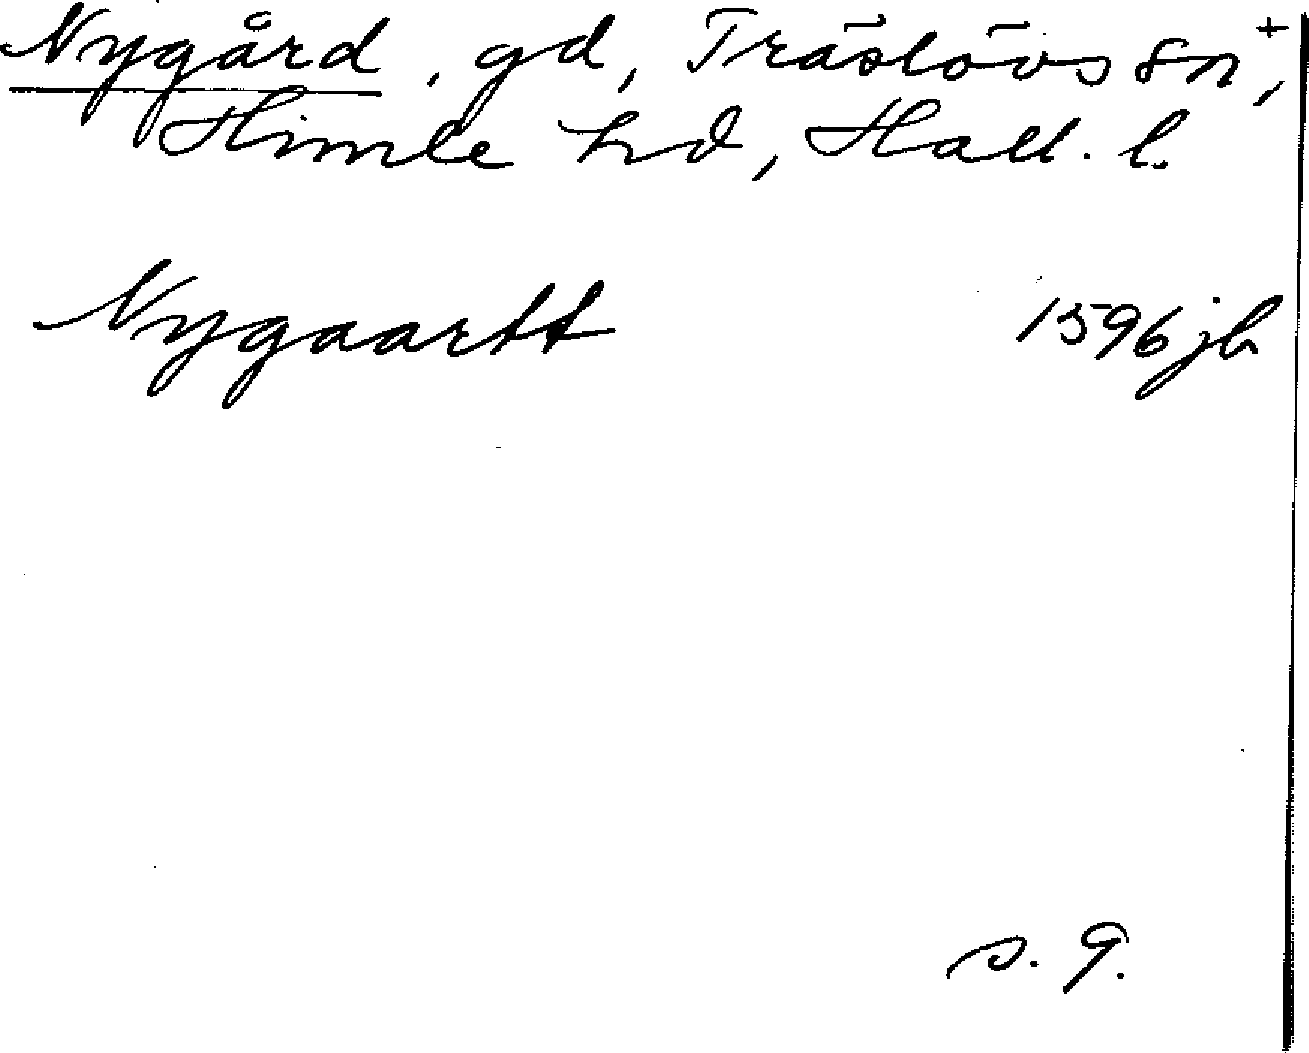 Nygård, gd, Träslövs sn+,
Himle hd, Hall. l.
Nygaartt 1596 jb
s. 9.